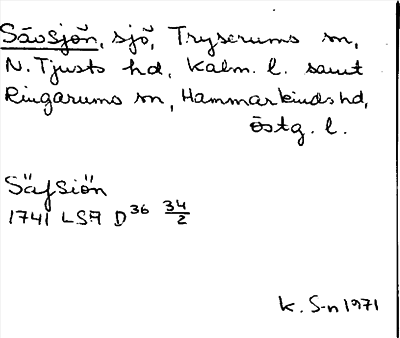 Sävsjön, sjö, Tryserums sn,
N. Tjusts hd, Kalm. l. samt
Ringarums sn, Hammarkinds hd,
Östg. l.
Säfsiön
1741 LSA D36 34/2
K. S-n 1971